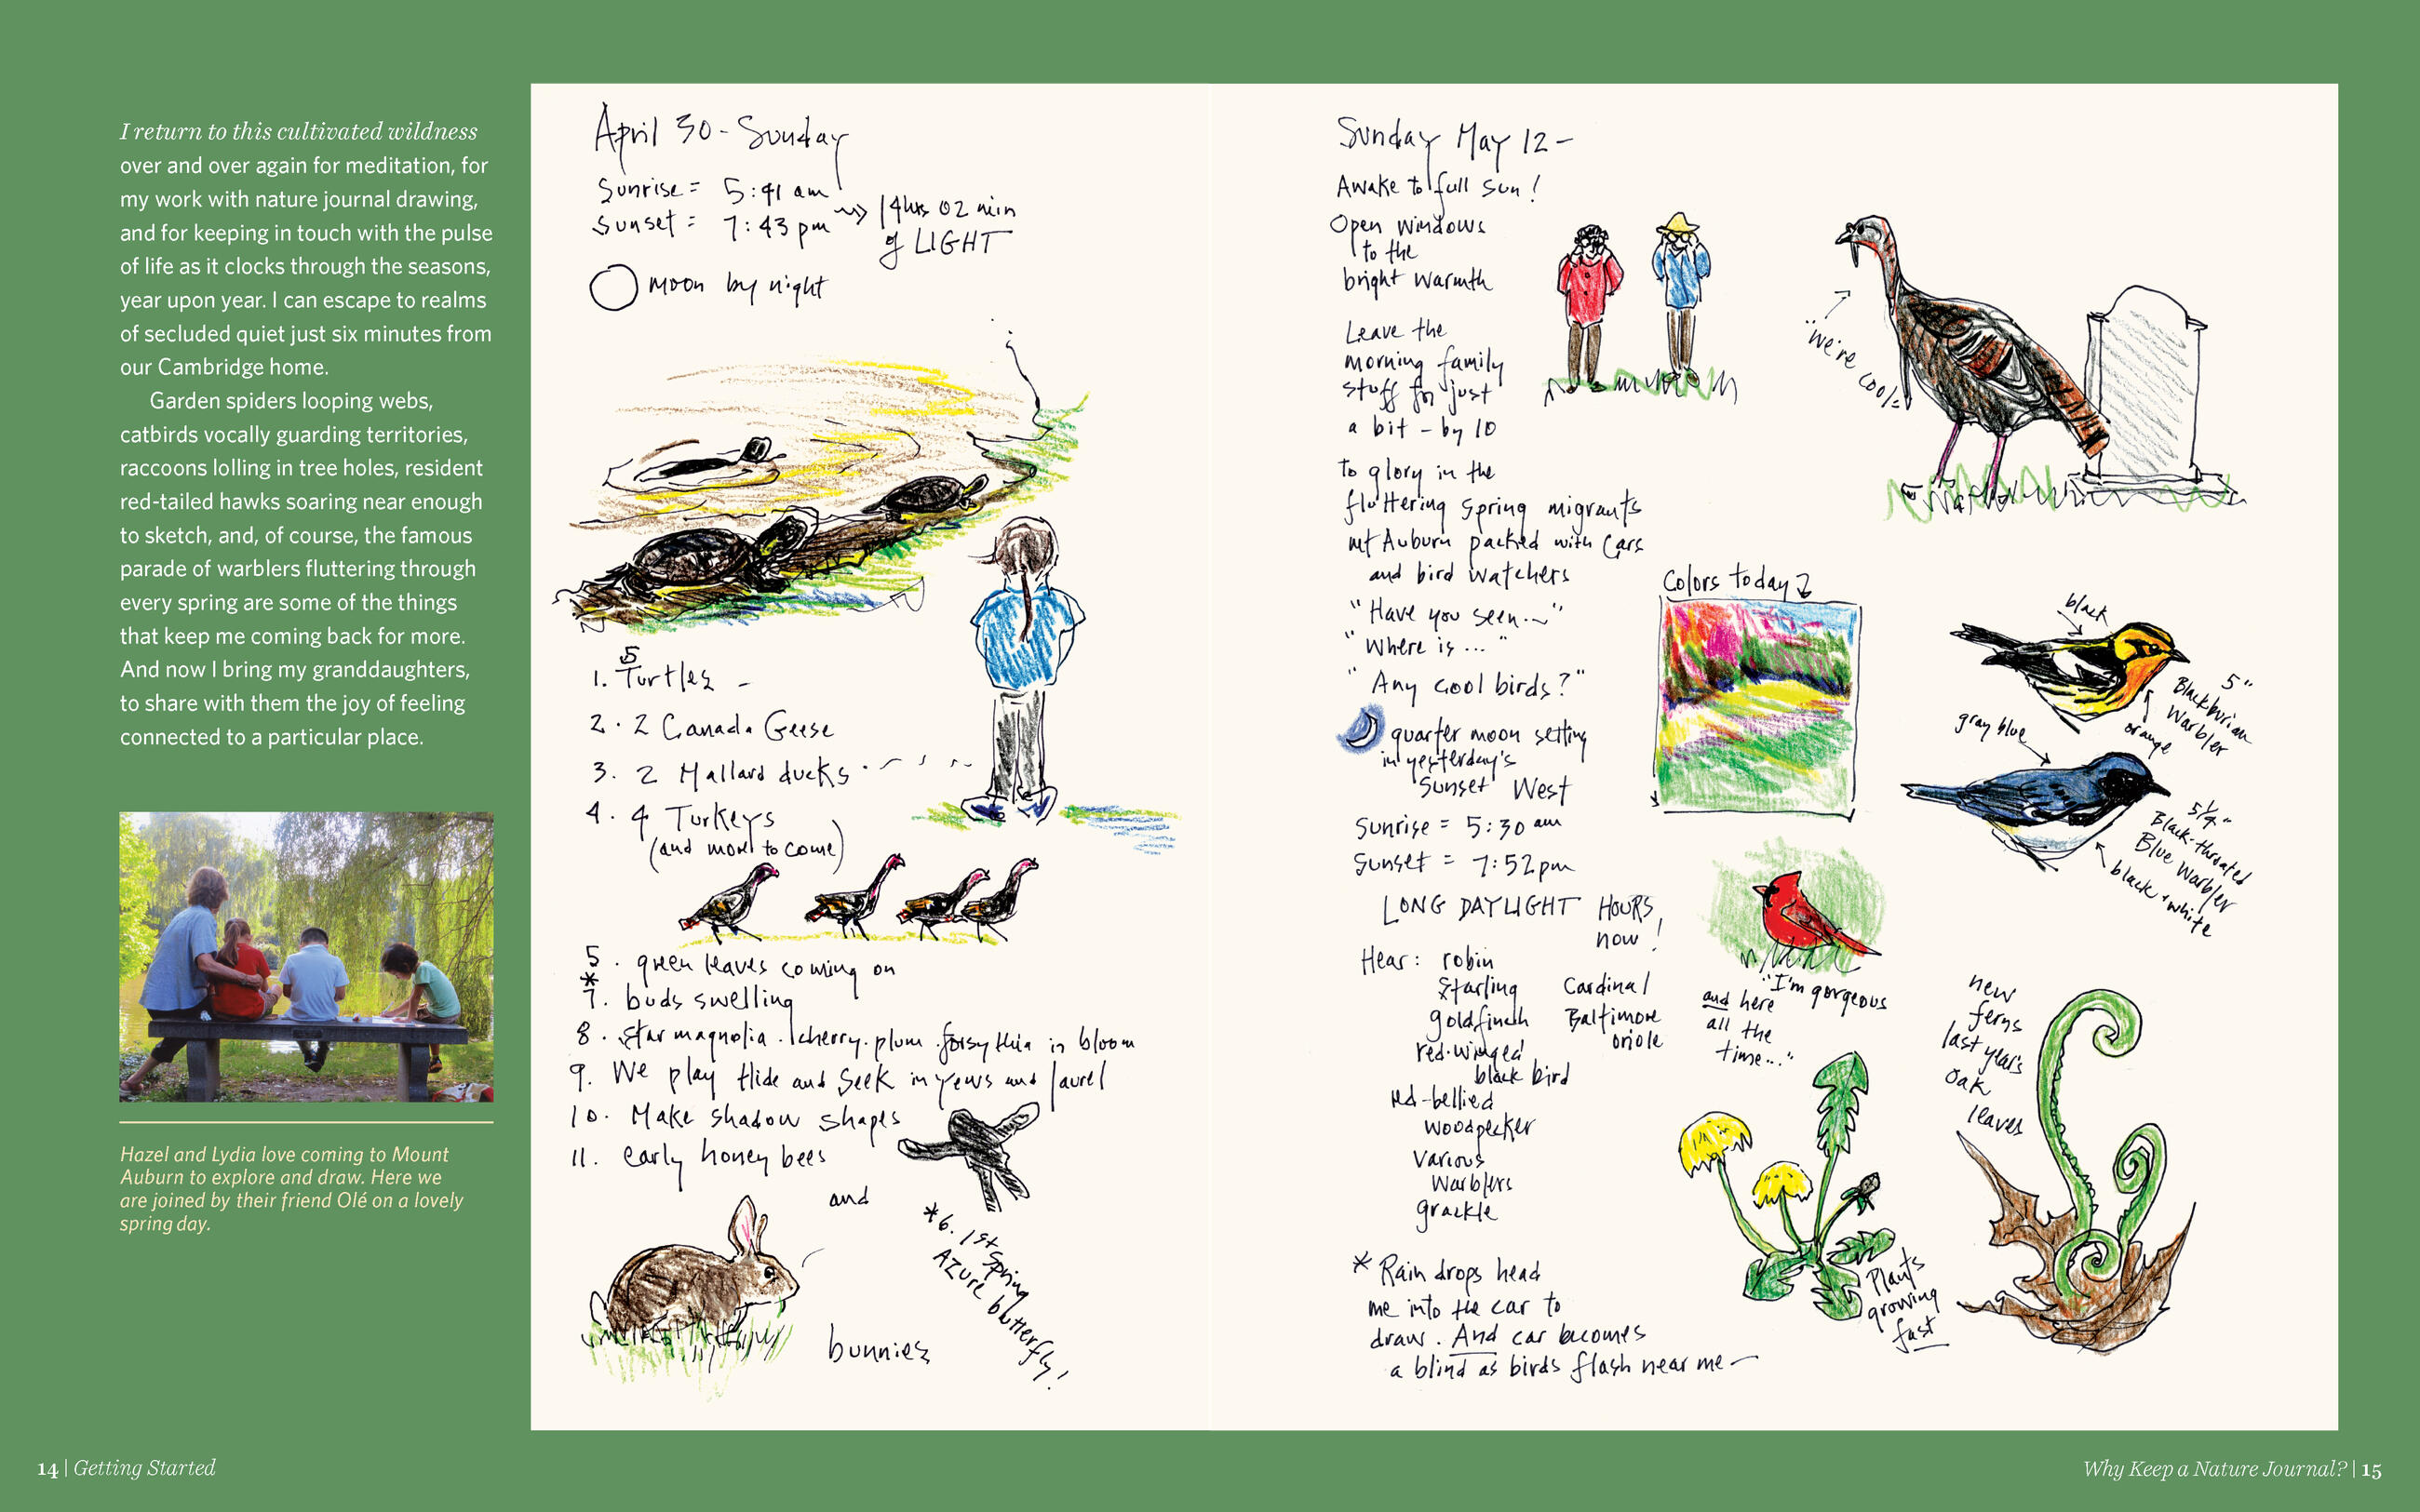 I return to this cultivated wildness
over and over again for meditation, for
my work with nature journal drawing,
and for keeping in touch with the pulse
of life as it clocks through the seasons,
year upon year. I can escape to realms
of secluded quiet just six minutes from
our Cambridge home.
Garden spiders looping webs,
catbirds vocally guarding territories,
raccoons lolling in tree holes, resident
red-tailed hawks soaring near enough
to sketch, and, of course, the famous
parade of warblers fluttering through
every spring are some of the things
that keep me coming back for more.
And now I bring my granddaughters,
to share with them the joy of feeling
connected to a particular place.
Hazel and Lydia love coming to Mount
Auburn to explore and draw. Here we
are joined by their friend Olé on a lovely
spring day.
14 | Getting Started
April 30 - Sunday
Sunrise = 5:41 am
Sunset = 7:43 pm
14 hrs 02 min
of LIGHT
moon by night
1. 5 Turtles -
2. 2 Canada Geese
3. 2 Mallard ducks
4. 4 Turkeys
(and more to come)
5. green leaves coming on
*
7. buds swelling
8. Star magnolia . cherry . plum . forsythia in bloom
9. We play Hide and Seek in yews and laurel
10. Make shadow shapes
11. early honey bees
and
bunnies
*6. 1st Spring
Azure butterfly!
Sunday May 12 -
Awake to full sun!
Open windows
to the
bright warmth
Leave the
morning family
stuff for just
a bit - by 10
to glory in the
fluttering spring migrants
Mt Auburn packed with cars
and bird watchers
"Have you seen..."
"Where is ..."
"Any cool birds?"
quarter moon setting
in yesterday's
Sunset West
Sunrise = 5:30 am
Sunset = 7:52 pm
LONG DAYLIGHT HOURS
now!
Hear: robin
Starling
goldfinch
red-winged
black bird
red-bellied
woodpecker
Various
Warblers
grackle
Cardinal
Baltimore
oriole
* Rain drops head
me into the car to
draw. And car becomes
a blind as birds flash near me -
"We're cool"
Colors today
black
5"
Blackburnian
Warbler
orange
gray blue
5 1/4"
Black-throated
Blue Warbler
black + white
"I'm gorgeous
and here
all the
time..."
new
ferns
last year's
oak
leaves
Plants
growing
fast
Why Keep a Nature Journal? | 15